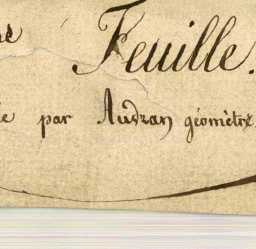 Feuille.
par Audran géomètre